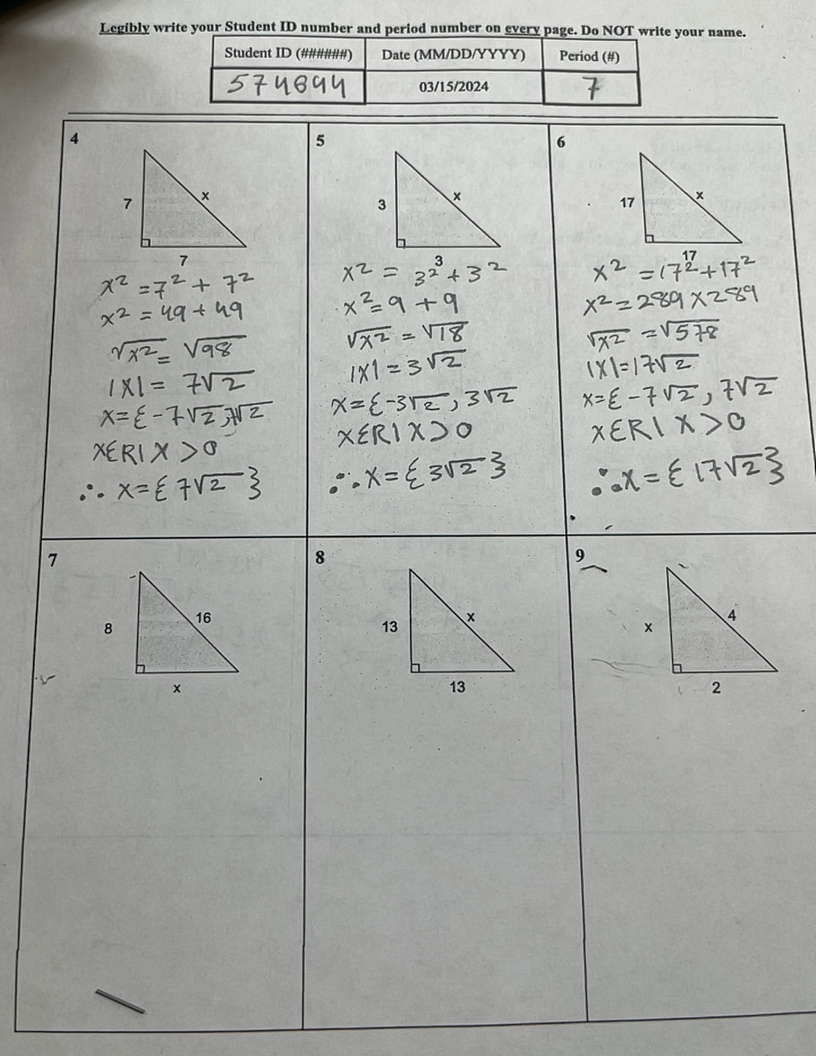 Legibly write your Student ID number and period number on every page. Do NOT write your name.
Student ID (######) Date (MM/DD/YYYY) Period (#)
574844 03/15/2024 7
4
7
x
7
x² = 7² + 7²
x² = 49 + 49
√x² = √98
|x| = 7√2
x = {-7√2, 7√2
xεR| x > 0
∴ x = {7√2}
5
3
x
3
x² = 3² + 3²
x² = 9 + 9
√x² = √18
|x| = 3√2
x = {-3√2, 3√2
xεR| x > 0
∴ x = {3√2}
6
17
x
17
x² = 17² + 17²
x² = 289 x 289
√x² = √578
|x| = 17√2
x = {-7√2, 7√2
xεR| x > 0
∴ x = {17√2}
7
8
16
x
8
13
x
13
9
x
4
2